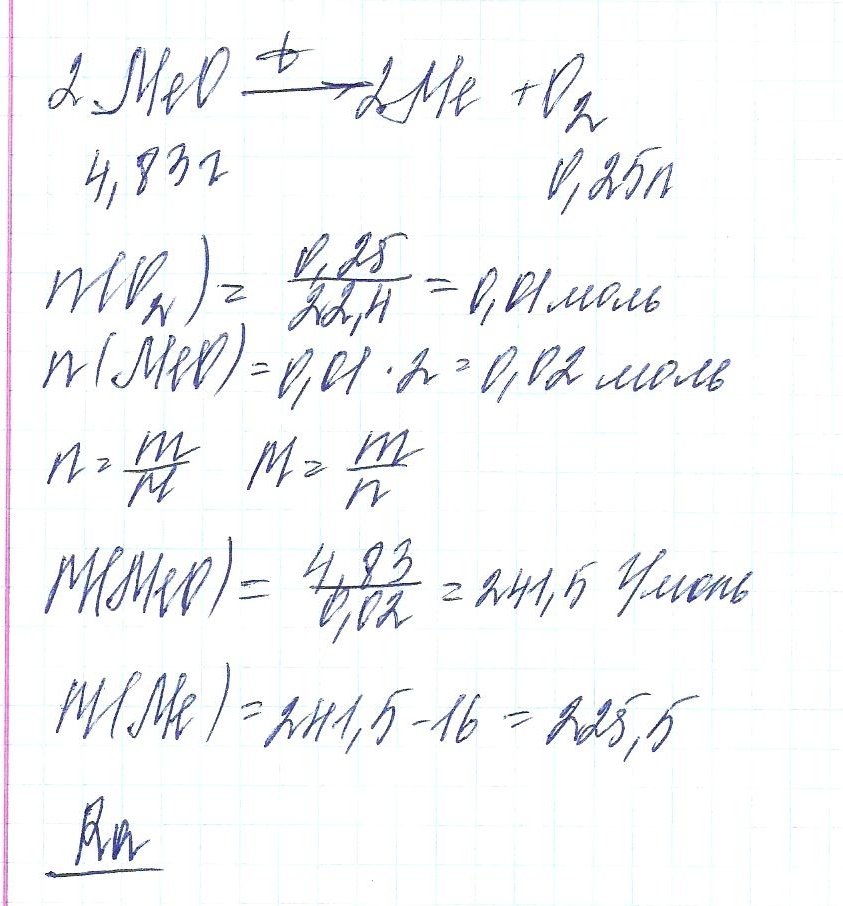 2MeO t→ 2Me + O2
4,83г 0,25л
n(O2) = 0,25/22,4 = 0,01 моль
n(MeO) = 0,01 · 2 = 0,02 моль
n = m/M M = m/n
M(MeO) = 4,83/0,02 = 241,5 г/моль
M(Me) = 241,5 - 16 = 225,5
Ra